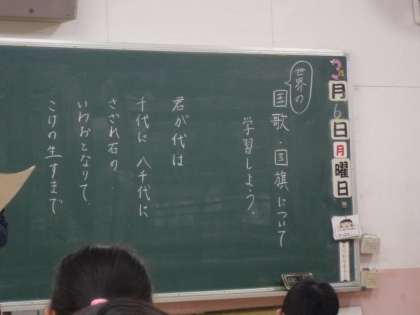 3月6日月曜日
世界の
国歌・国旗について
学習しよう。
君が代は
千代に 八千代に
さざれ石の
いわおとなりて
こけの生すまで